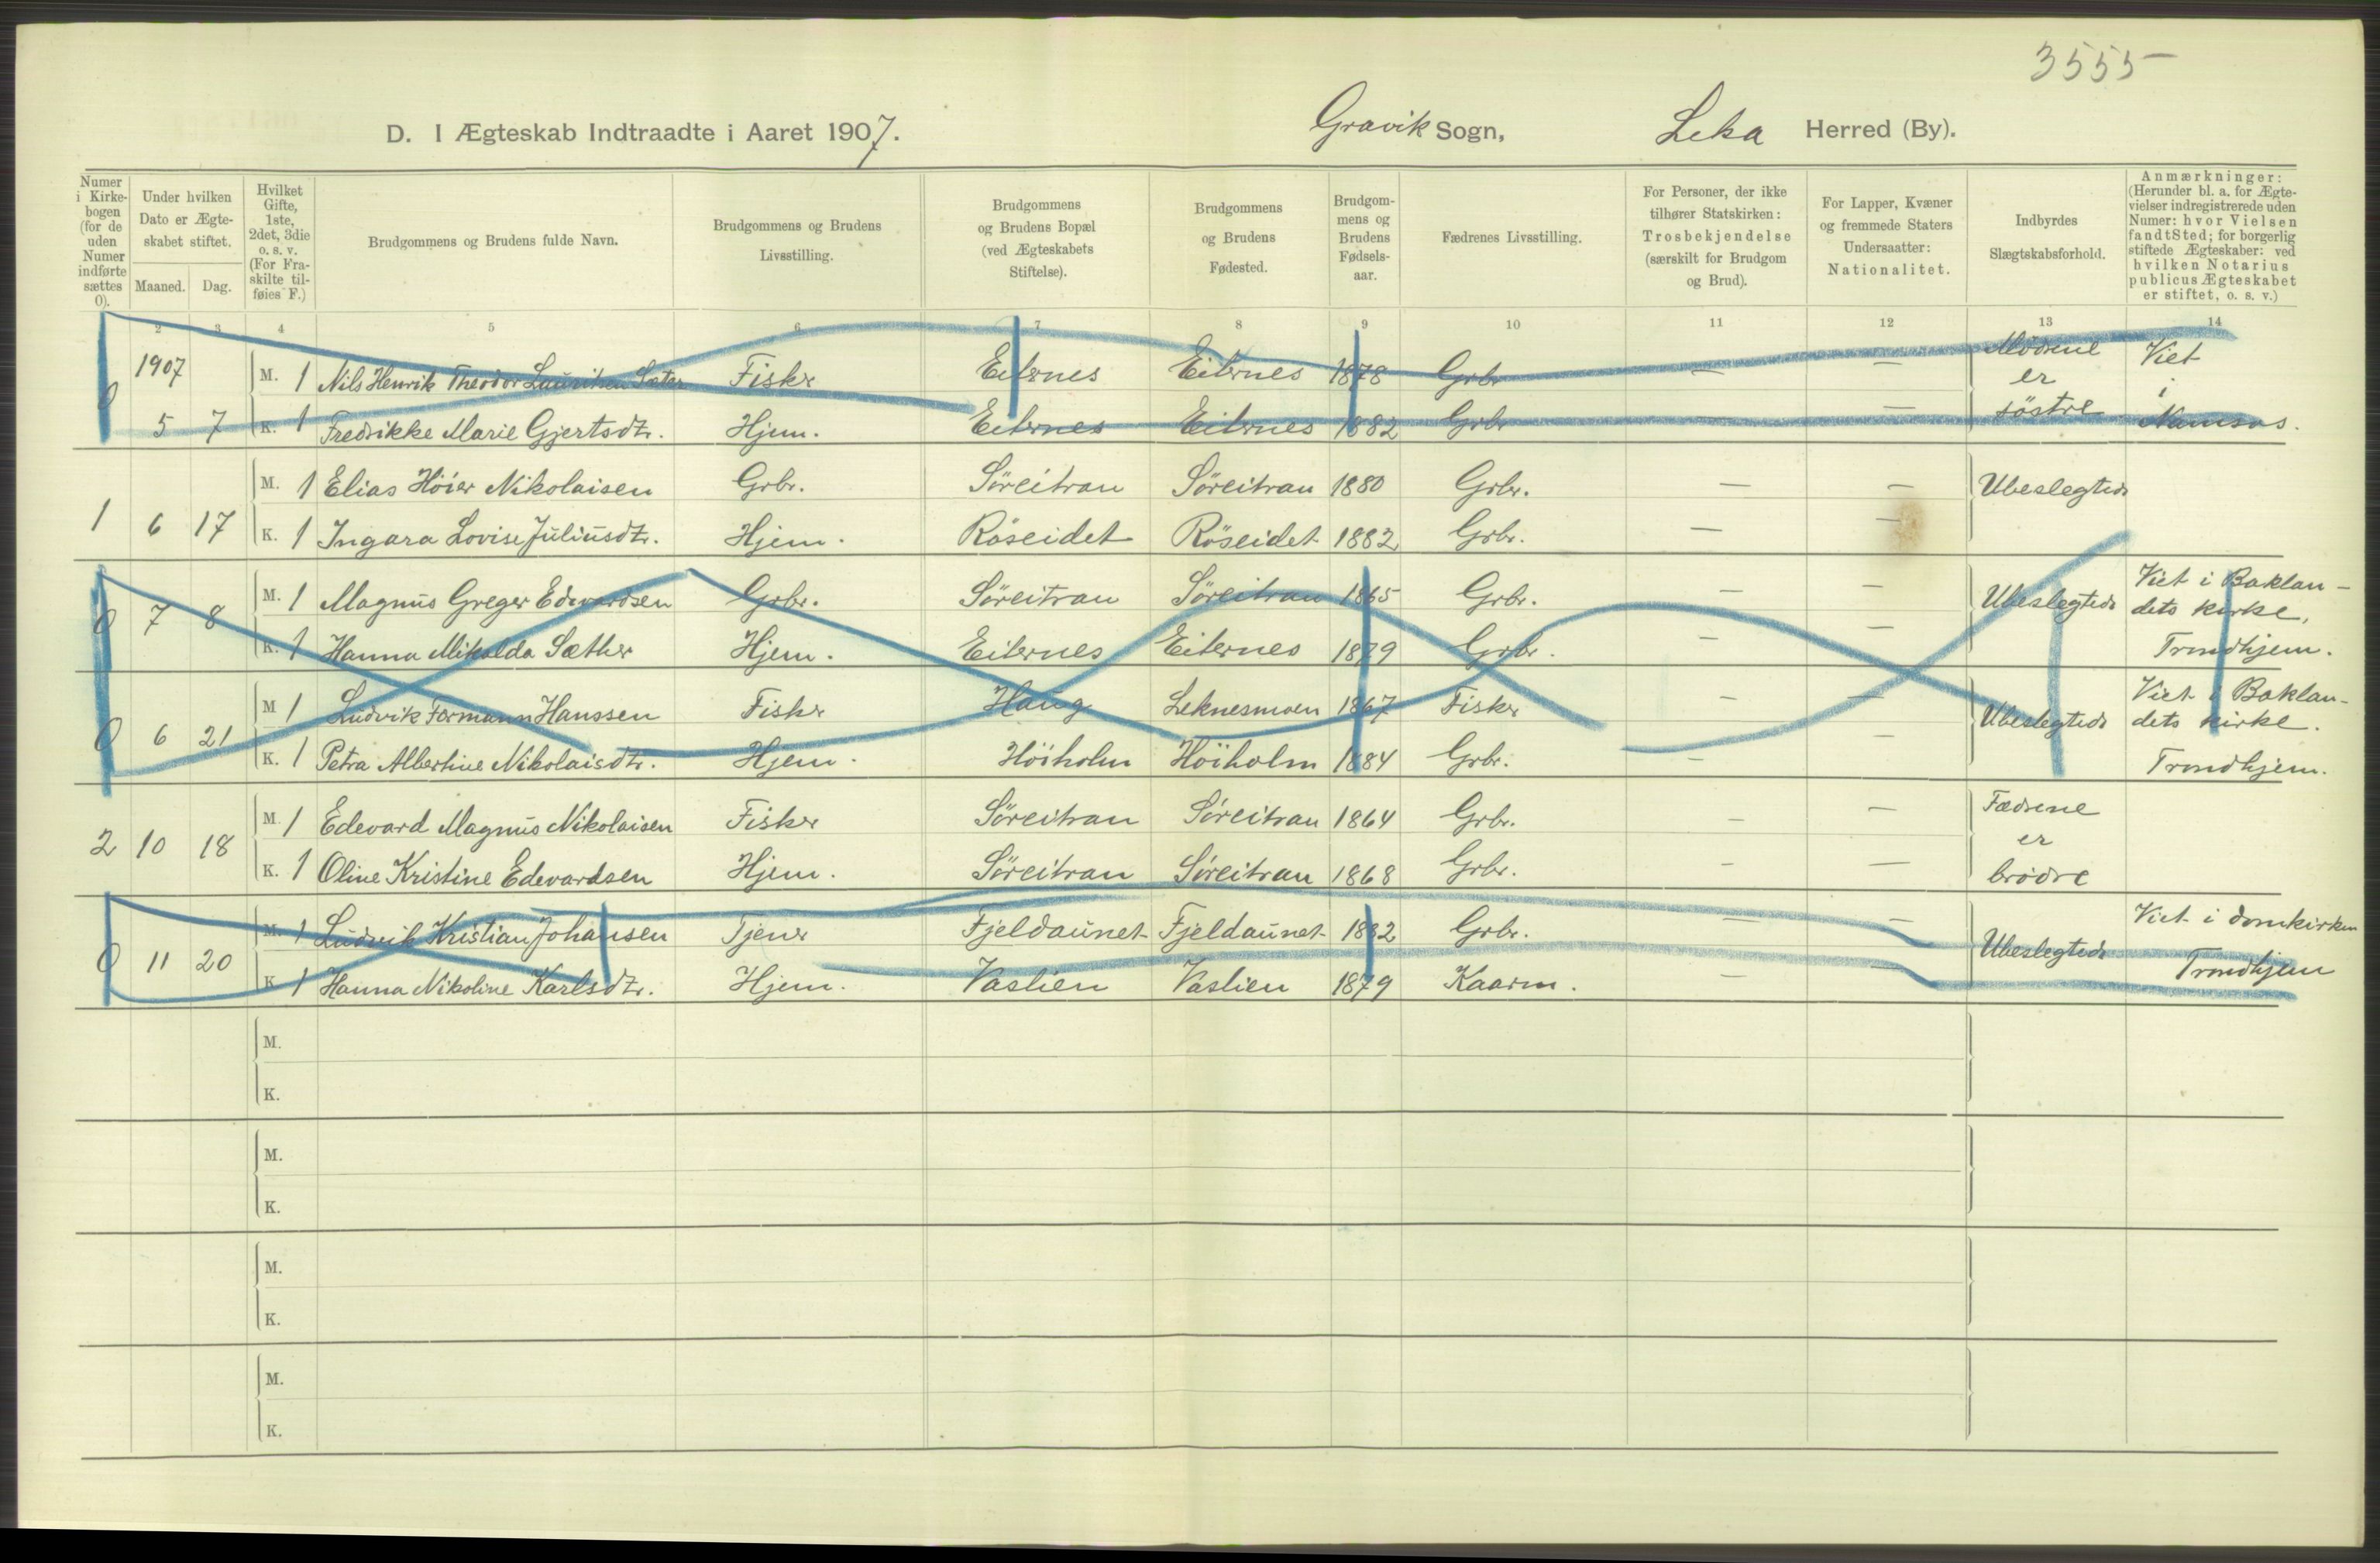 3555
D. I Ægteskab Indtraadte i Aaret 1907. Gravik Sogn, Leka Herred (By).
Numer i Kirke-bogen (for de uden Numer indførte sættes 0).
Under hvilken Dato er Ægte-skabet stiftet.
Maaned. Dag.
Hvilket Gifte, 1ste, 2det, 3die o. s. v. (For Fra-skilte til-føies F.)
Brudgommens og Brudens fulde Navn.
Brudgommens og Brudens Livsstilling.
Brudgommens og Brudens Bopæl (ved Ægteskabets Stiftelse).
Brudgommens og Brudens Fødested.
Brudgom-mens og Brudens Fødsels-aar.
Fædrenes Livsstilling.
For Personer, der ikke tilhører Statskirken: Trosbekjendelse (særskilt for Brudgom og Brud).
For Lapper, Kvæner og fremmede Staters Undersaatter: Nationalitet.
Indbyrdes Slægtskabsforhold.
Anmærkninger: (Herunder bl. a. for Ægte-vielser indregistrerede uden Numer: hvor Vielsen fandt Sted; for borgerlig stiftede Ægteskaber: ved hvilken Notarius publicus Ægteskabet er stiftet, o. s. v.)
2 3 4 5 6 7 8 9 10 11 12 13 14
1907 M. 1 Nils Henrik Theodor Lauritsen Sæter Fisker Eiternes Eiternes 1878 Grbr — — Mödrene er Viet i
0 5 7 K. 1 Fredrikke Marie Gjertsdtr. Hjem. Eiternes Eiternes 1882 Grbr — söstre Namsos.
M. 1 Elias Höier Nikolaisen Grbr. Söreitran Söreitran 1880 Grbr. — — Ubeslegtede
1 6 17 K. 1 Ingara Lovise Juliusdtr. Hjem. Röseidet Röseidet 1882 Grbr. — —
0 7 8 M. 1 Magnus Greger Edevardsen Grbr. Söreitran Söreitran 1865 Grbr. — — Ubeslegtede Viet i Baklan-dets kirke,
K. 1 Hanna Mikalda Sæther Hjem. Eiternes Eiternes 1879 Grbr. — — Trondhjem.
M 1 Ludvik Formann Hanssen Fisker Haug Leknesmoen 1867 Fisker — — Ubeslegtede Viet i Baklan-dets kirke.
0 6 21 K. 1 Petra Albertine Nikolaisdtr. Hjem. Höiholm Höiholm 1884 Grbr. — — Trondhjem.
M. 1 Edevard Magnus Nikolaisen Fisker Söreitran Söreitran 1864 Grbr. — — Fædrene er
2 10 18 K. 1 Oline Kristine Edevardsen Hjem. Söreitran Söreitran 1868 Grbr. — — brödre
M. 1 Ludvik Kristian Johansen Tjener Fjeldaunet Fjeldaunet 1882 Grbr. — — Ubeslegtede Viet i domkirken
0 11 20 K 1 Hanna Nikoline Karlsdtr. Hjem. Vaslien Vaslien 1879 Kaarm. — Trondhjem
M.
K.
M.
K.
M.
K.
M.
K.